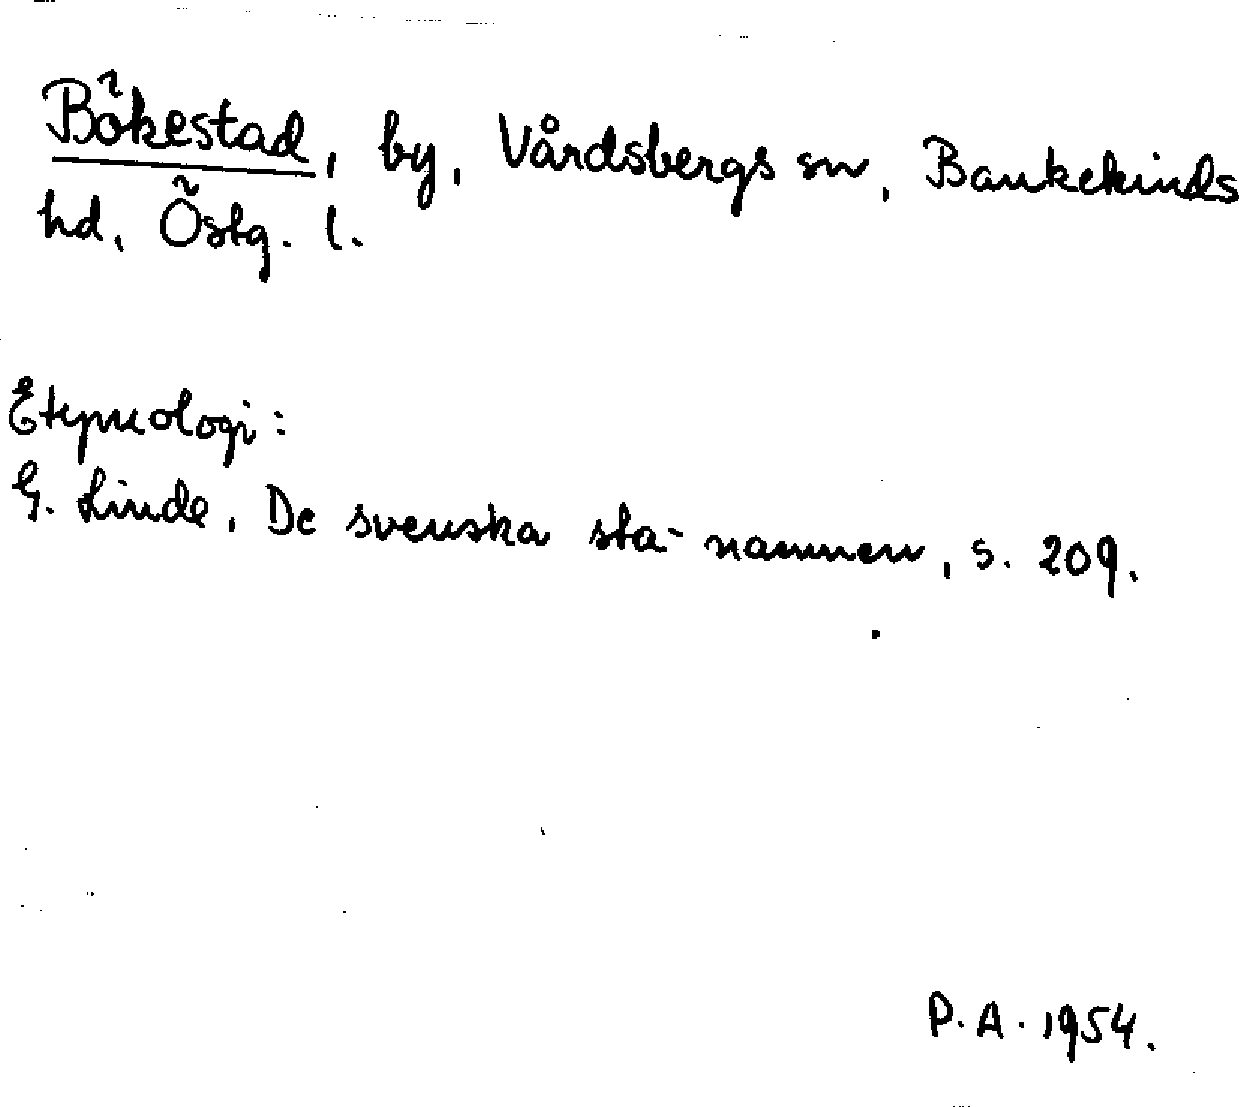 Bökestad, by, Vårdsbergs sn, Bankekinds
hd, Östg. l.
Etymologi:
G. Linde, De svenska sta-namnen, s. 209.
P.A. 1954.